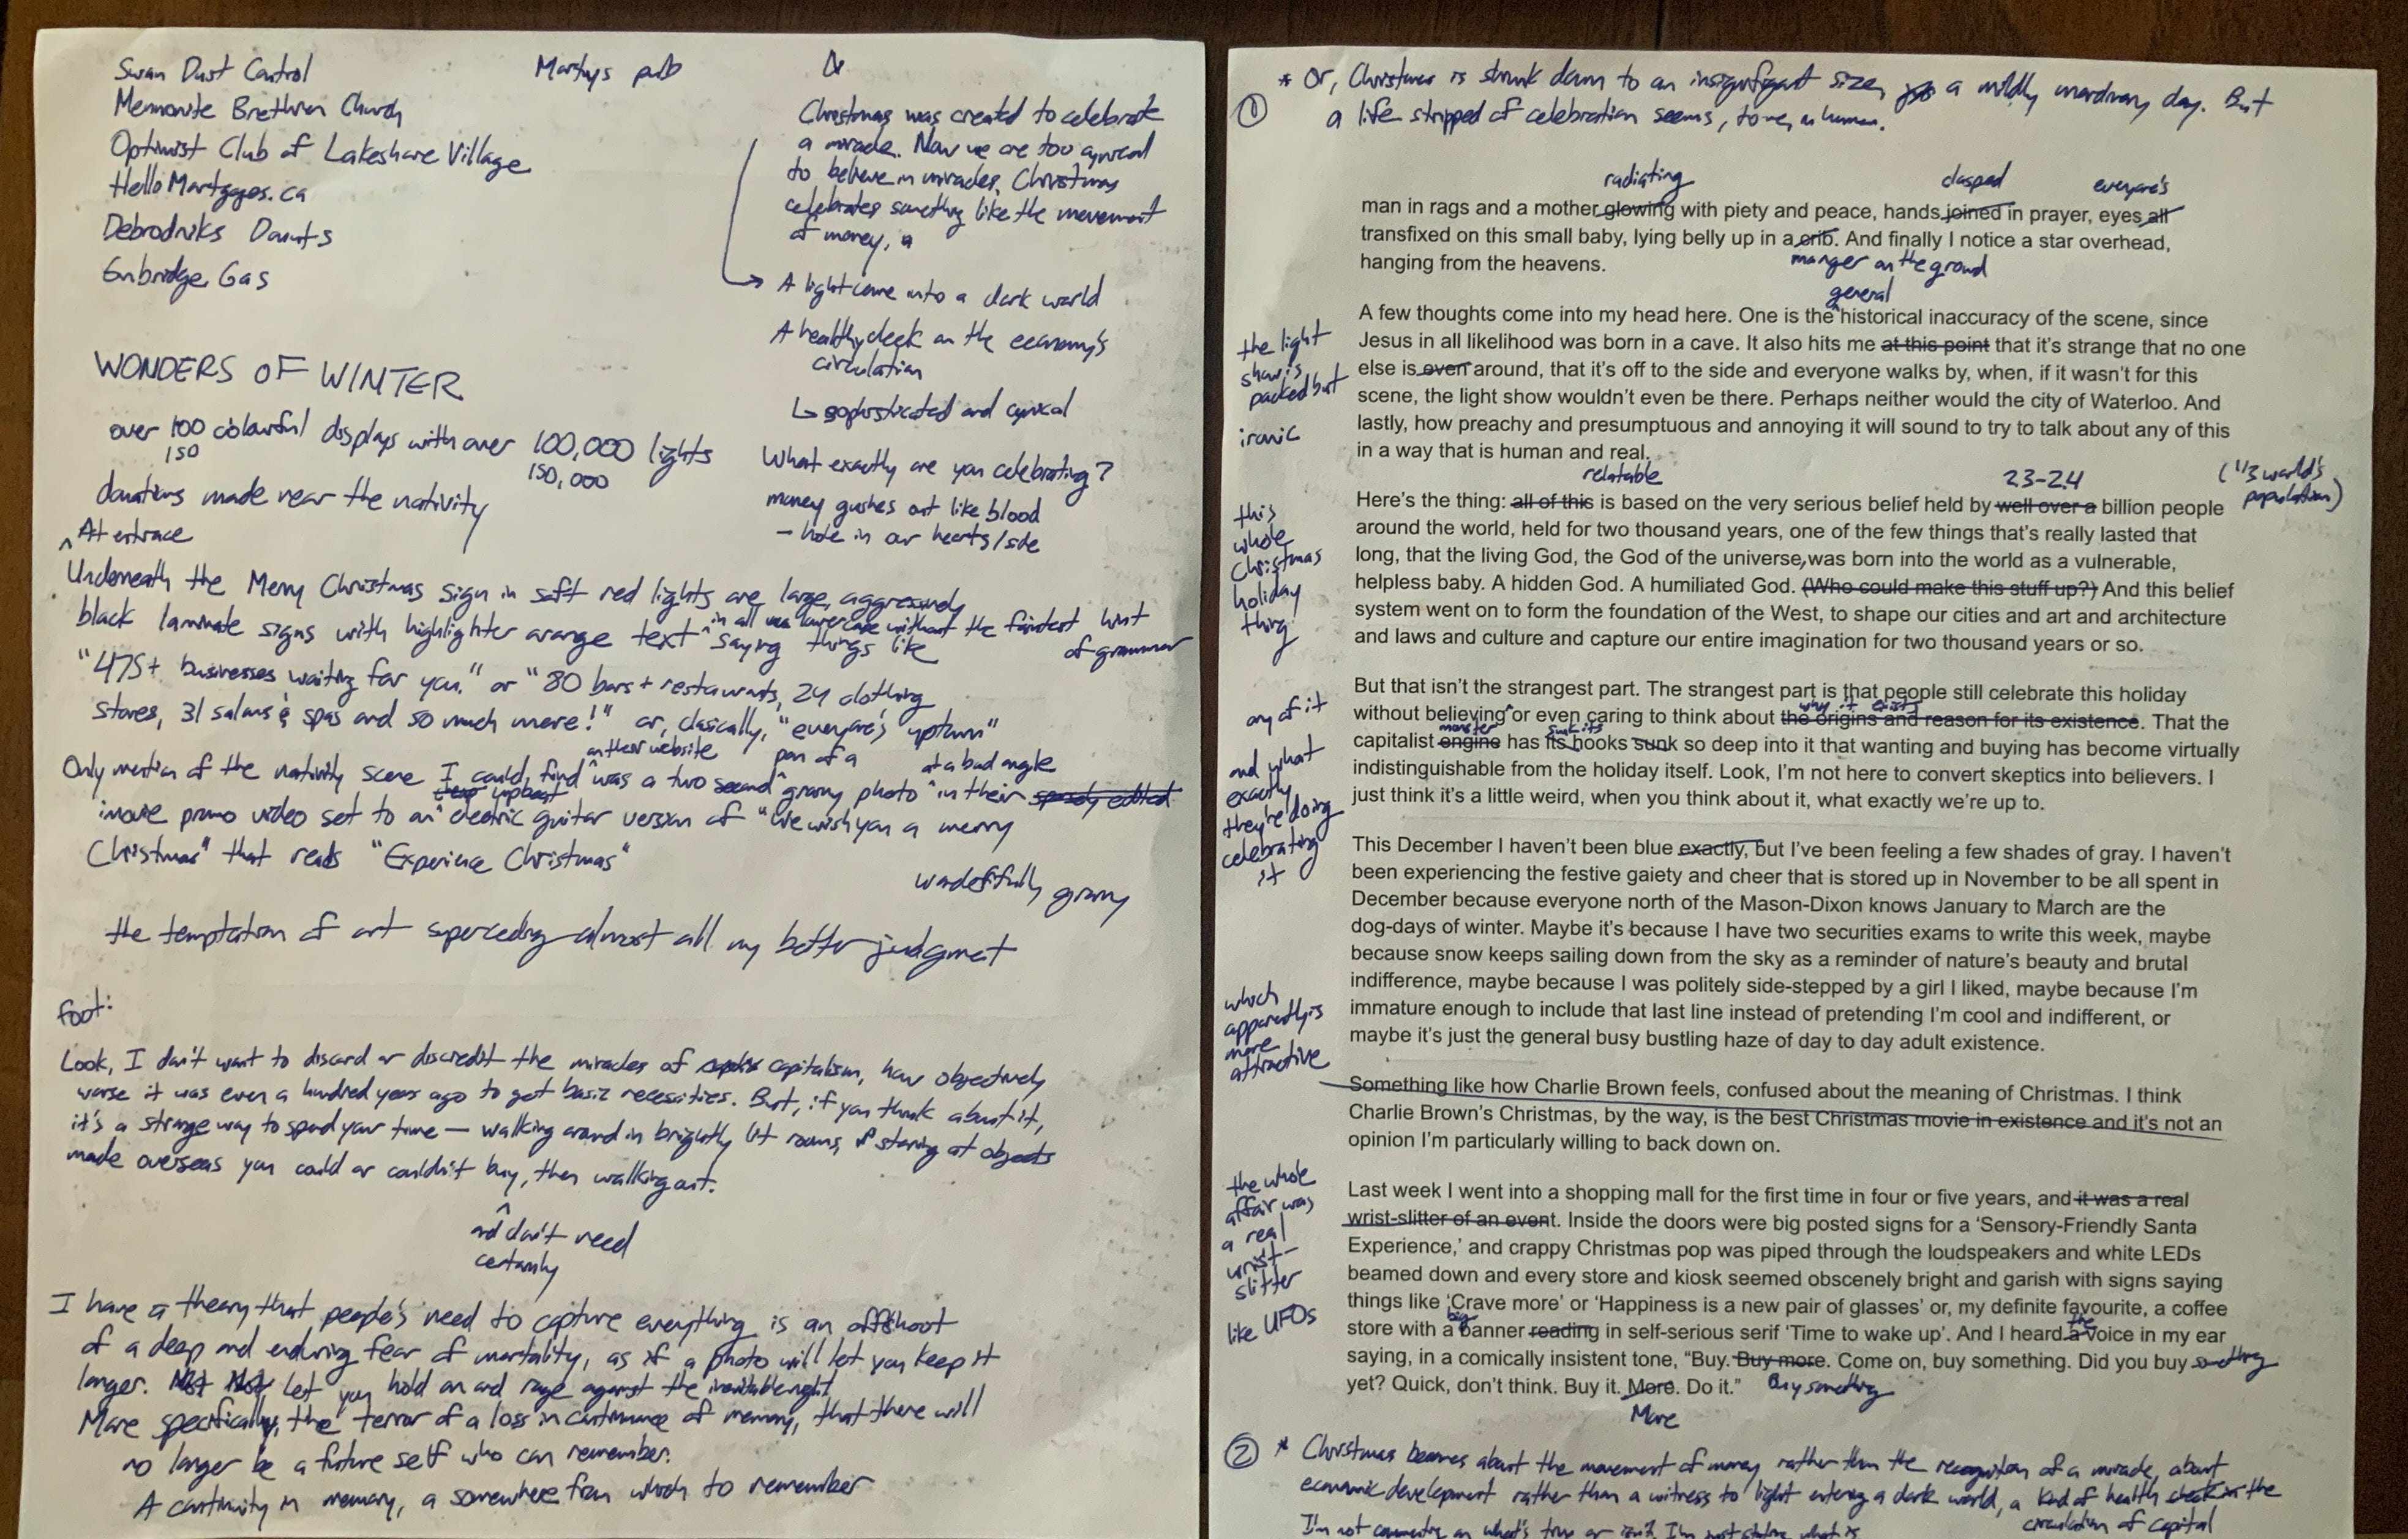 Swan Dust Control
Mennonite Brethren Church
Optimist Club of Lakeshore Village
Hello Martgges.ca
Debrodniks Donuts
Enbridge Gas
Martys pub
Christmas was created to celebrate
a miracle. Now we are too cynical
to believe in miracles. Christmas
celebrates something like the movement
of money, a
A light came into a dark world
A healthy check on the economy's
circulation
↳ sophisticated and cynical
What exactly are you celebrating?
money gushes out like blood
- hole in our hearts/side
WONDERS OF WINTER
over 100 colourful displays with over 100,000 lights
150
150,000
donations made near the nativity
^ At entrace
Underneath the Merry Christmas sign in soft red lights are large, aggressively
black laminate signs with highlighter orange text ^ saying things like
in all lowercase without the faintest hint
of grammar
"475+ businesses waiting for you." or "80 bars + restaurants, 24 clothing
stores, 31 salons & spas and so much more!" or, clasically, "everyone's uptown"
on their website
pan of a
at a bad angle
Only mention of the nativity scene I could find ^ was a two second ^ grainy photo ^ in their speedy edited
upbeat
imovie promo video set to an ^ electric guitar version of "We wish you a merry
Christmas" that reads "Experience Christmas"
wonderfully grainy
the temptation of art superceding almost all my better judgment
foot:
Look, I don't want to discard or discredit the miracles of capitalism, how objectively
worse it was even a hundred years ago to get basic necessities. But, if you think about it,
it's a strange way to spend your time — walking around in brightly lit rooms, staring at objects
made overseas you could or couldn't buy, then walking out.
^
and don't need
certainly
I have a theory that people's need to capture everything is an offshoot
of a deep and enduring fear of mortality, as if a photo will let you keep it
longer. let you hold on and rage against the inevitable night
More specifically, the terror of a loss in continuance of memory, that there will
no longer be a future self who can remember.
A continuity in memory, a somewhere from which to remember
* Or, Christmas is shrunk down to an insignificant size, a mildly mundane day. But
① a life stripped of celebration seems, to me, inhuman.
radiating clasped everyone's
man in rags and a mother glowing with piety and peace, hands joined in prayer, eyes all
transfixed on this small baby, lying belly up in a crib. And finally I notice a star overhead,
manger on the ground
hanging from the heavens.
general
A few thoughts come into my head here. One is the ^ historical inaccuracy of the scene, since
Jesus in all likelihood was born in a cave. It also hits me at this point that it's strange that no one
else is even around, that it's off to the side and everyone walks by, when, if it wasn't for this
scene, the light show wouldn't even be there. Perhaps neither would the city of Waterloo. And
lastly, how preachy and presumptuous and annoying it will sound to try to talk about any of this
in a way that is human and real.
the light
show is
packed but
ironic
relatable
2.3-2.4
(1/3 world's
population)
Here's the thing: all of this is based on the very serious belief held by well over a billion people
around the world, held for two thousand years, one of the few things that's really lasted that
long, that the living God, the God of the universe, was born into the world as a vulnerable,
helpless baby. A hidden God. A humiliated God. (Who could make this stuff up?) And this belief
system went on to form the foundation of the West, to shape our cities and art and architecture
and laws and culture and capture our entire imagination for two thousand years or so.
this
whole
Christmas
holiday
thing
But that isn't the strangest part. The strangest part is that people still celebrate this holiday
why it exists
without believing ^ or even caring to think about the origins and reason for its existence. That the
monster sunk its
capitalist engine has its hooks sunk so deep into it that wanting and buying has become virtually
indistinguishable from the holiday itself. Look, I'm not here to convert skeptics into believers. I
just think it's a little weird, when you think about it, what exactly we're up to.
any of it
and what
exactly
they're doing
celebrating
it
This December I haven't been blue exactly, but I've been feeling a few shades of gray. I haven't
been experiencing the festive gaiety and cheer that is stored up in November to be all spent in
December because everyone north of the Mason-Dixon knows January to March are the
dog-days of winter. Maybe it's because I have two securities exams to write this week, maybe
because snow keeps sailing down from the sky as a reminder of nature's beauty and brutal
indifference, maybe because I was politely side-stepped by a girl I liked, maybe because I'm
immature enough to include that last line instead of pretending I'm cool and indifferent, or
maybe it's just the general busy bustling haze of day to day adult existence.
which
apparently is
more
attractive
Something like how Charlie Brown feels, confused about the meaning of Christmas. I think
Charlie Brown's Christmas, by the way, is the best Christmas movie in existence and it's not an
opinion I'm particularly willing to back down on.
Last week I went into a shopping mall for the first time in four or five years, and it was a real
wrist-slitter of an event. Inside the doors were big posted signs for a 'Sensory-Friendly Santa
Experience,' and crappy Christmas pop was piped through the loudspeakers and white LEDs
beamed down and every store and kiosk seemed obscenely bright and garish with signs saying
things like 'Crave more' or 'Happiness is a new pair of glasses' or, my definite favourite, a coffee
big the
store with a banner reading in self-serious serif 'Time to wake up'. And I heard a voice in my ear
saying, in a comically insistent tone, "Buy. Buy more. Come on, buy something. Did you buy something
yet? Quick, don't think. Buy it. More. Do it." Buy something
More
the whole
affair was
a real
wrist-
slitter
like UFOs
② * Christmas becomes about the movement of money rather than the recognition of a miracle, about
economic development rather than a witness to light entering a dark world, a kind of health check on the
circulation of capital
I'm not commenting on what's true or isn't, I'm just stating what is